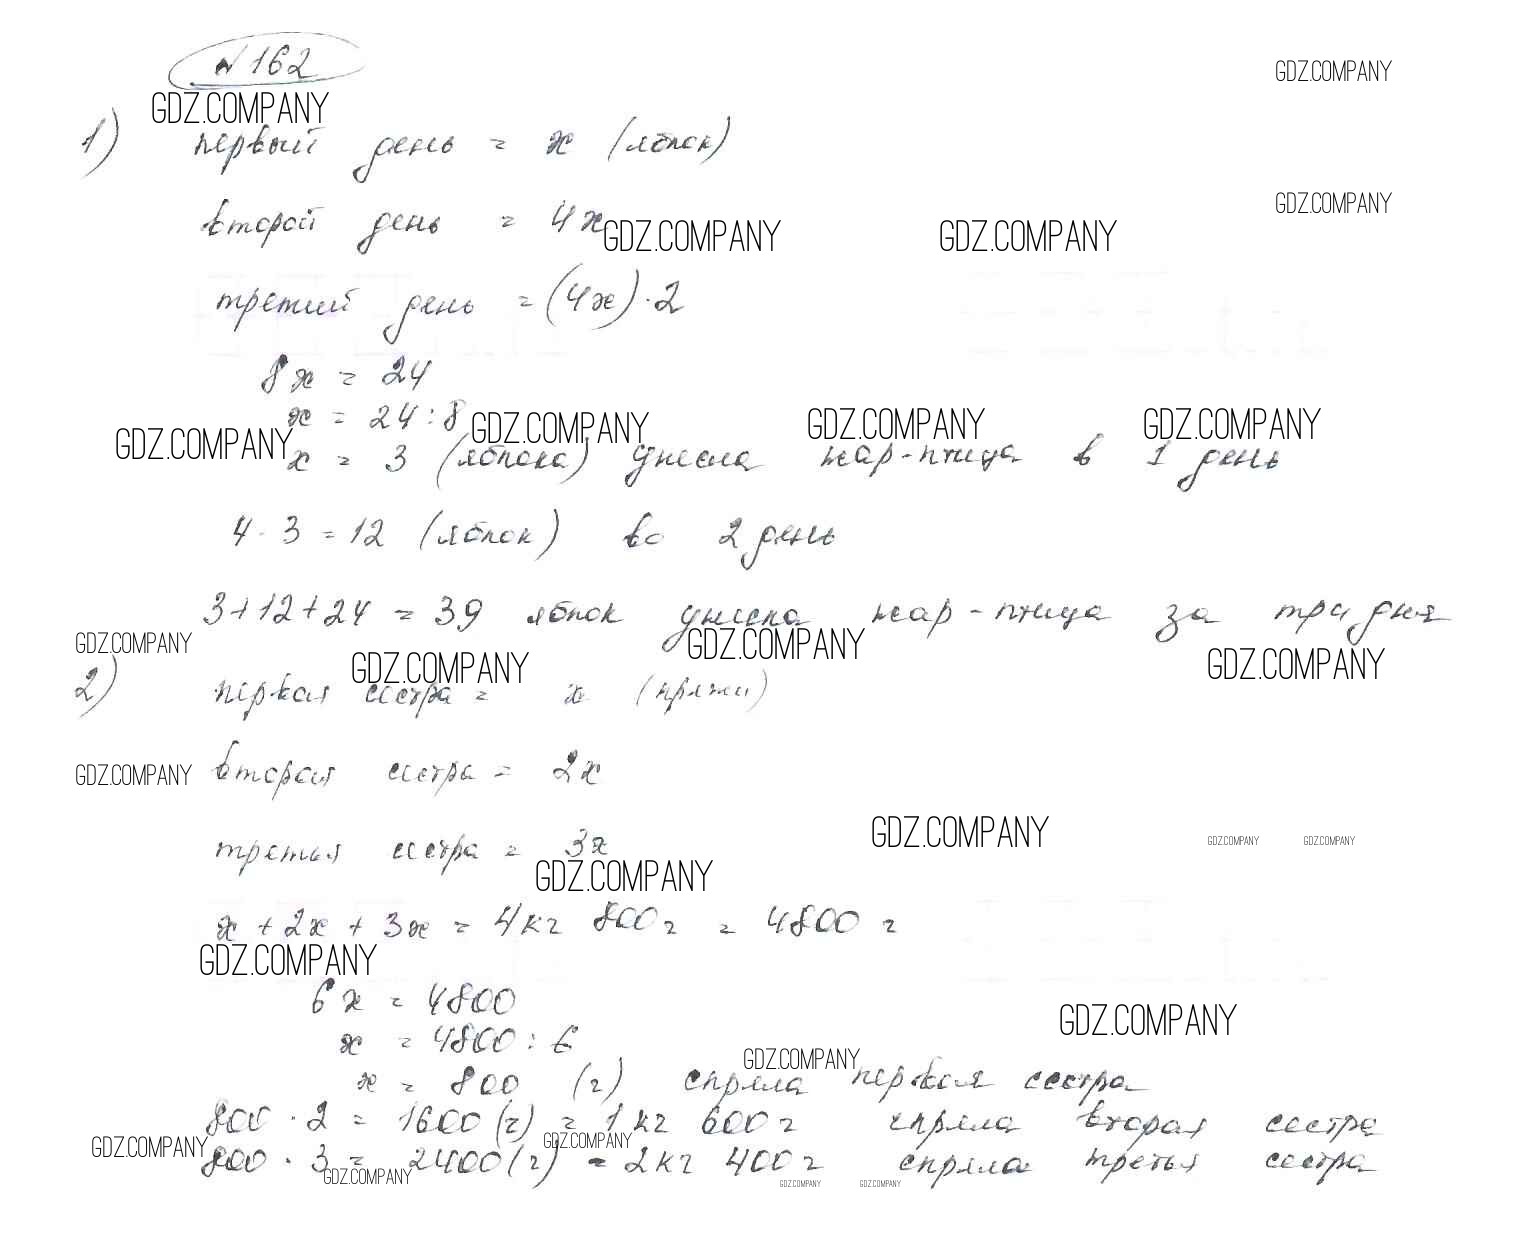 № 162
GDZ.COMPANY
GDZ.COMPANY
1) первый день = x (яблок)
GDZ.COMPANY
второй день = 4x
GDZ.COMPANY GDZ.COMPANY
третий день = (4x) · 2
8x = 24
x = 24 : 8
GDZ.COMPANY GDZ.COMPANY GDZ.COMPANY GDZ.COMPANY
x = 3 (яблока) унесла жар-птица в 1 день
4 · 3 = 12 (яблок) во 2 день
3 + 12 + 24 = 39 яблок унесла жар-птица за три дня
GDZ.COMPANY GDZ.COMPANY GDZ.COMPANY GDZ.COMPANY
2) первая сестра = x (пряжи)
GDZ.COMPANY
вторая сестра = 2x
GDZ.COMPANY GDZ.COMPANY GDZ.COMPANY
третья сестра = 3x
GDZ.COMPANY
x + 2x + 3x = 4 кг 800 г = 4800 г
GDZ.COMPANY
6x = 4800
GDZ.COMPANY
x = 4800 : 6
GDZ.COMPANY
x = 800 (г) спряла первая сестра
800 · 2 = 1600 (г) = 1 кг 600 г спряла вторая сестра
GDZ.COMPANY GDZ.COMPANY
800 · 3 = 2400 (г) = 2 кг 400 г спряла третья сестра
GDZ.COMPANY GDZ.COMPANY GDZ.COMPANY